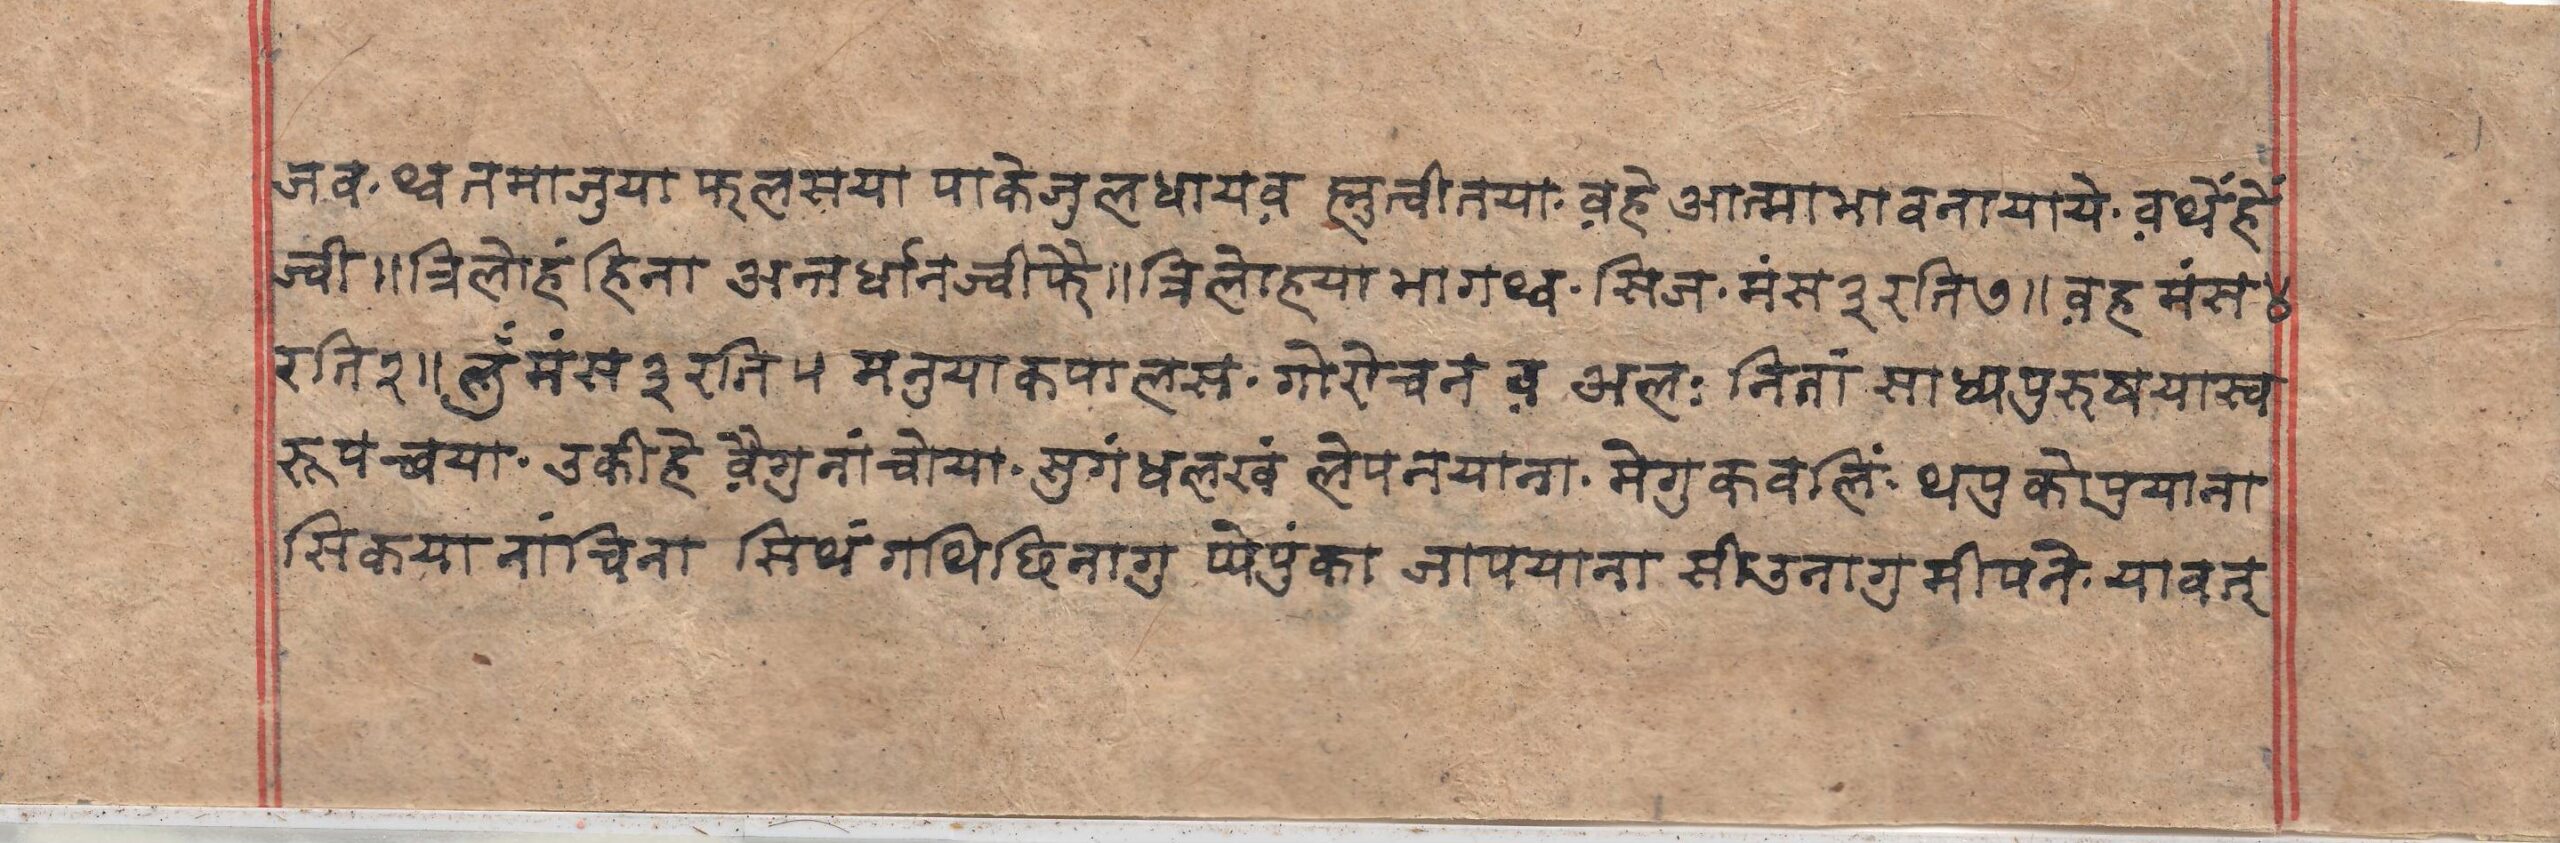 जव. थ्व तमाजुया फलसया पाकेजुल धायव़ ह्लुत्वीतया. व़हे आत्माभावनायाये. व़थेंहें
ज्वी॥ त्रिलोहं हिना अन्तर्धानज्वीफै॥ त्रिलोहया भागथ्व. सिज. मंस ३ रति ७॥ व़ह मंस ४
रति २॥ लुँ मंस ३ रति ५ मनुयाकपालस. गोरोचन व़ अलः नितां साध्यपुरुषयास्व
रूपच्वया. उकीहे व़ैगुनांचोया. सुगंधलखं लेपनयाना. मेगुकवलिं. थपुकोपुयाना
सिकयानांचिना सिथं गथिछिनागु प्येपुंका जापयाना सीउनागुमीपने. यावत्